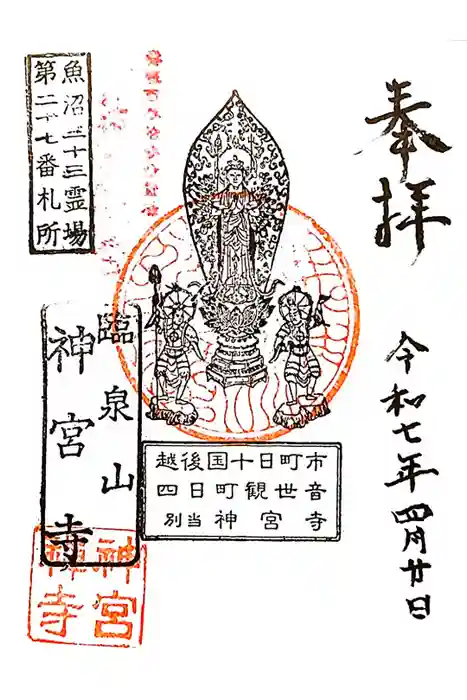 奉拝
令和七年四月廿日
越後国十日町市
四日町観世音
別当神宮寺
魚沼三十三霊場
第二十七番札所
臨泉山
神宮寺
神宮
禅寺